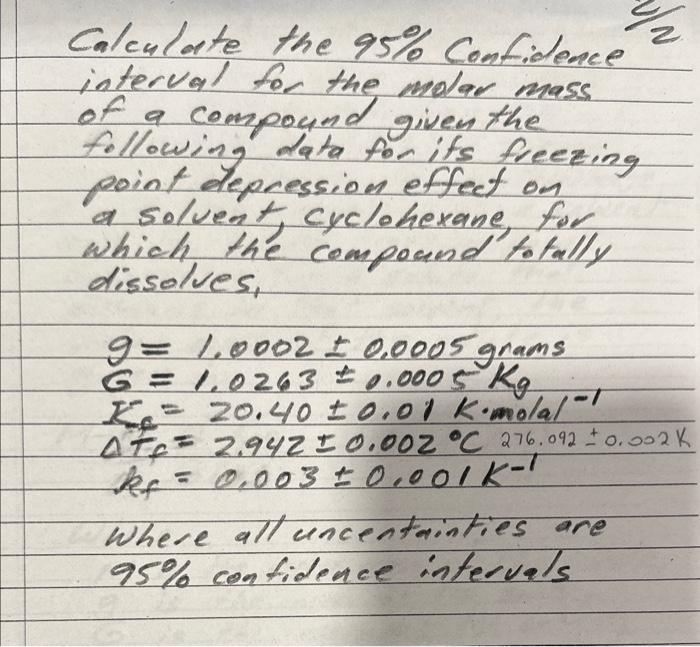 2/2
Calculate the 95% Confidence
interval for the molar mass
of a compound given the
following data for its freezing
point depression effect on
a solvent, cyclohexane, for
which the compound totally
dissolves,
g = 1.0002 ± 0.0005 grams
G = 1.0263 ± 0.0005 Kg
K_f = 20.40 ± 0.01 K·molal⁻¹
ΔT_f = 2.942 ± 0.002 °C 276.092 ± 0.002 K
k_f = 0.003 ± 0.001 K⁻¹
Where all uncentainties are
95% confidence intervals